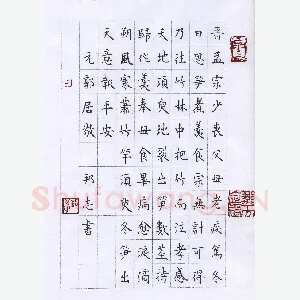 孟宗少喪父母老疾篤冬
日思笋煮羹食宗無計可得
乃往竹林中抱竹而泣孝感
天地須臾地裂出笋數莖持
歸作羹奉母食畢病愈淚滴
朔風寒蕭竹竿須臾冬笋出
天意報平安
元郭居敬 邦志書